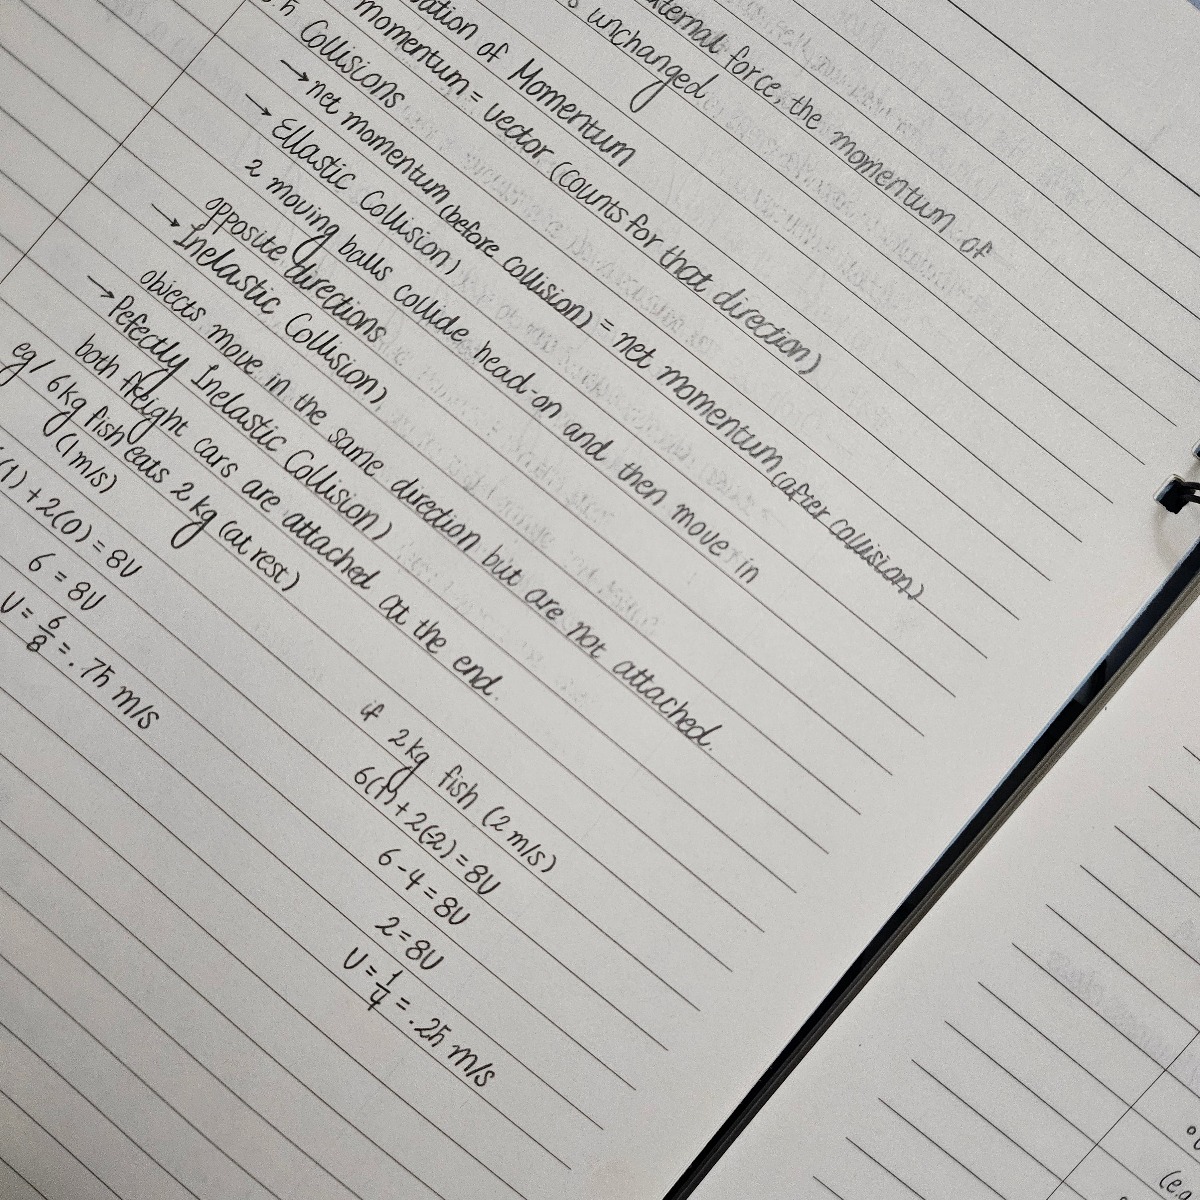 external force, the momentum of
unchanged
of Momentum
momentum = vector (counts for that direction)
Collisions
→ net momentum (before collision) = net momentum (after collision)
→ Ellastic Collision)
2 moving balls collide head-on and then move in
opposite directions
→ Inelastic Collision)
objects move in the same direction but are not attached.
→ Pefectly Inelastic Collision)
both freight cars are attached at the end.
eg/ 6kg fish eats 2 kg (at rest)
(1m/s)
(1) + 2(0) = 8V
6 = 8V
V = 6/8 = .75 m/s
if 2kg fish (2 m/s)
6(1) + 2(-2) = 8V
6 - 4 = 8V
2 = 8V
V = 1/4 = .25 m/s